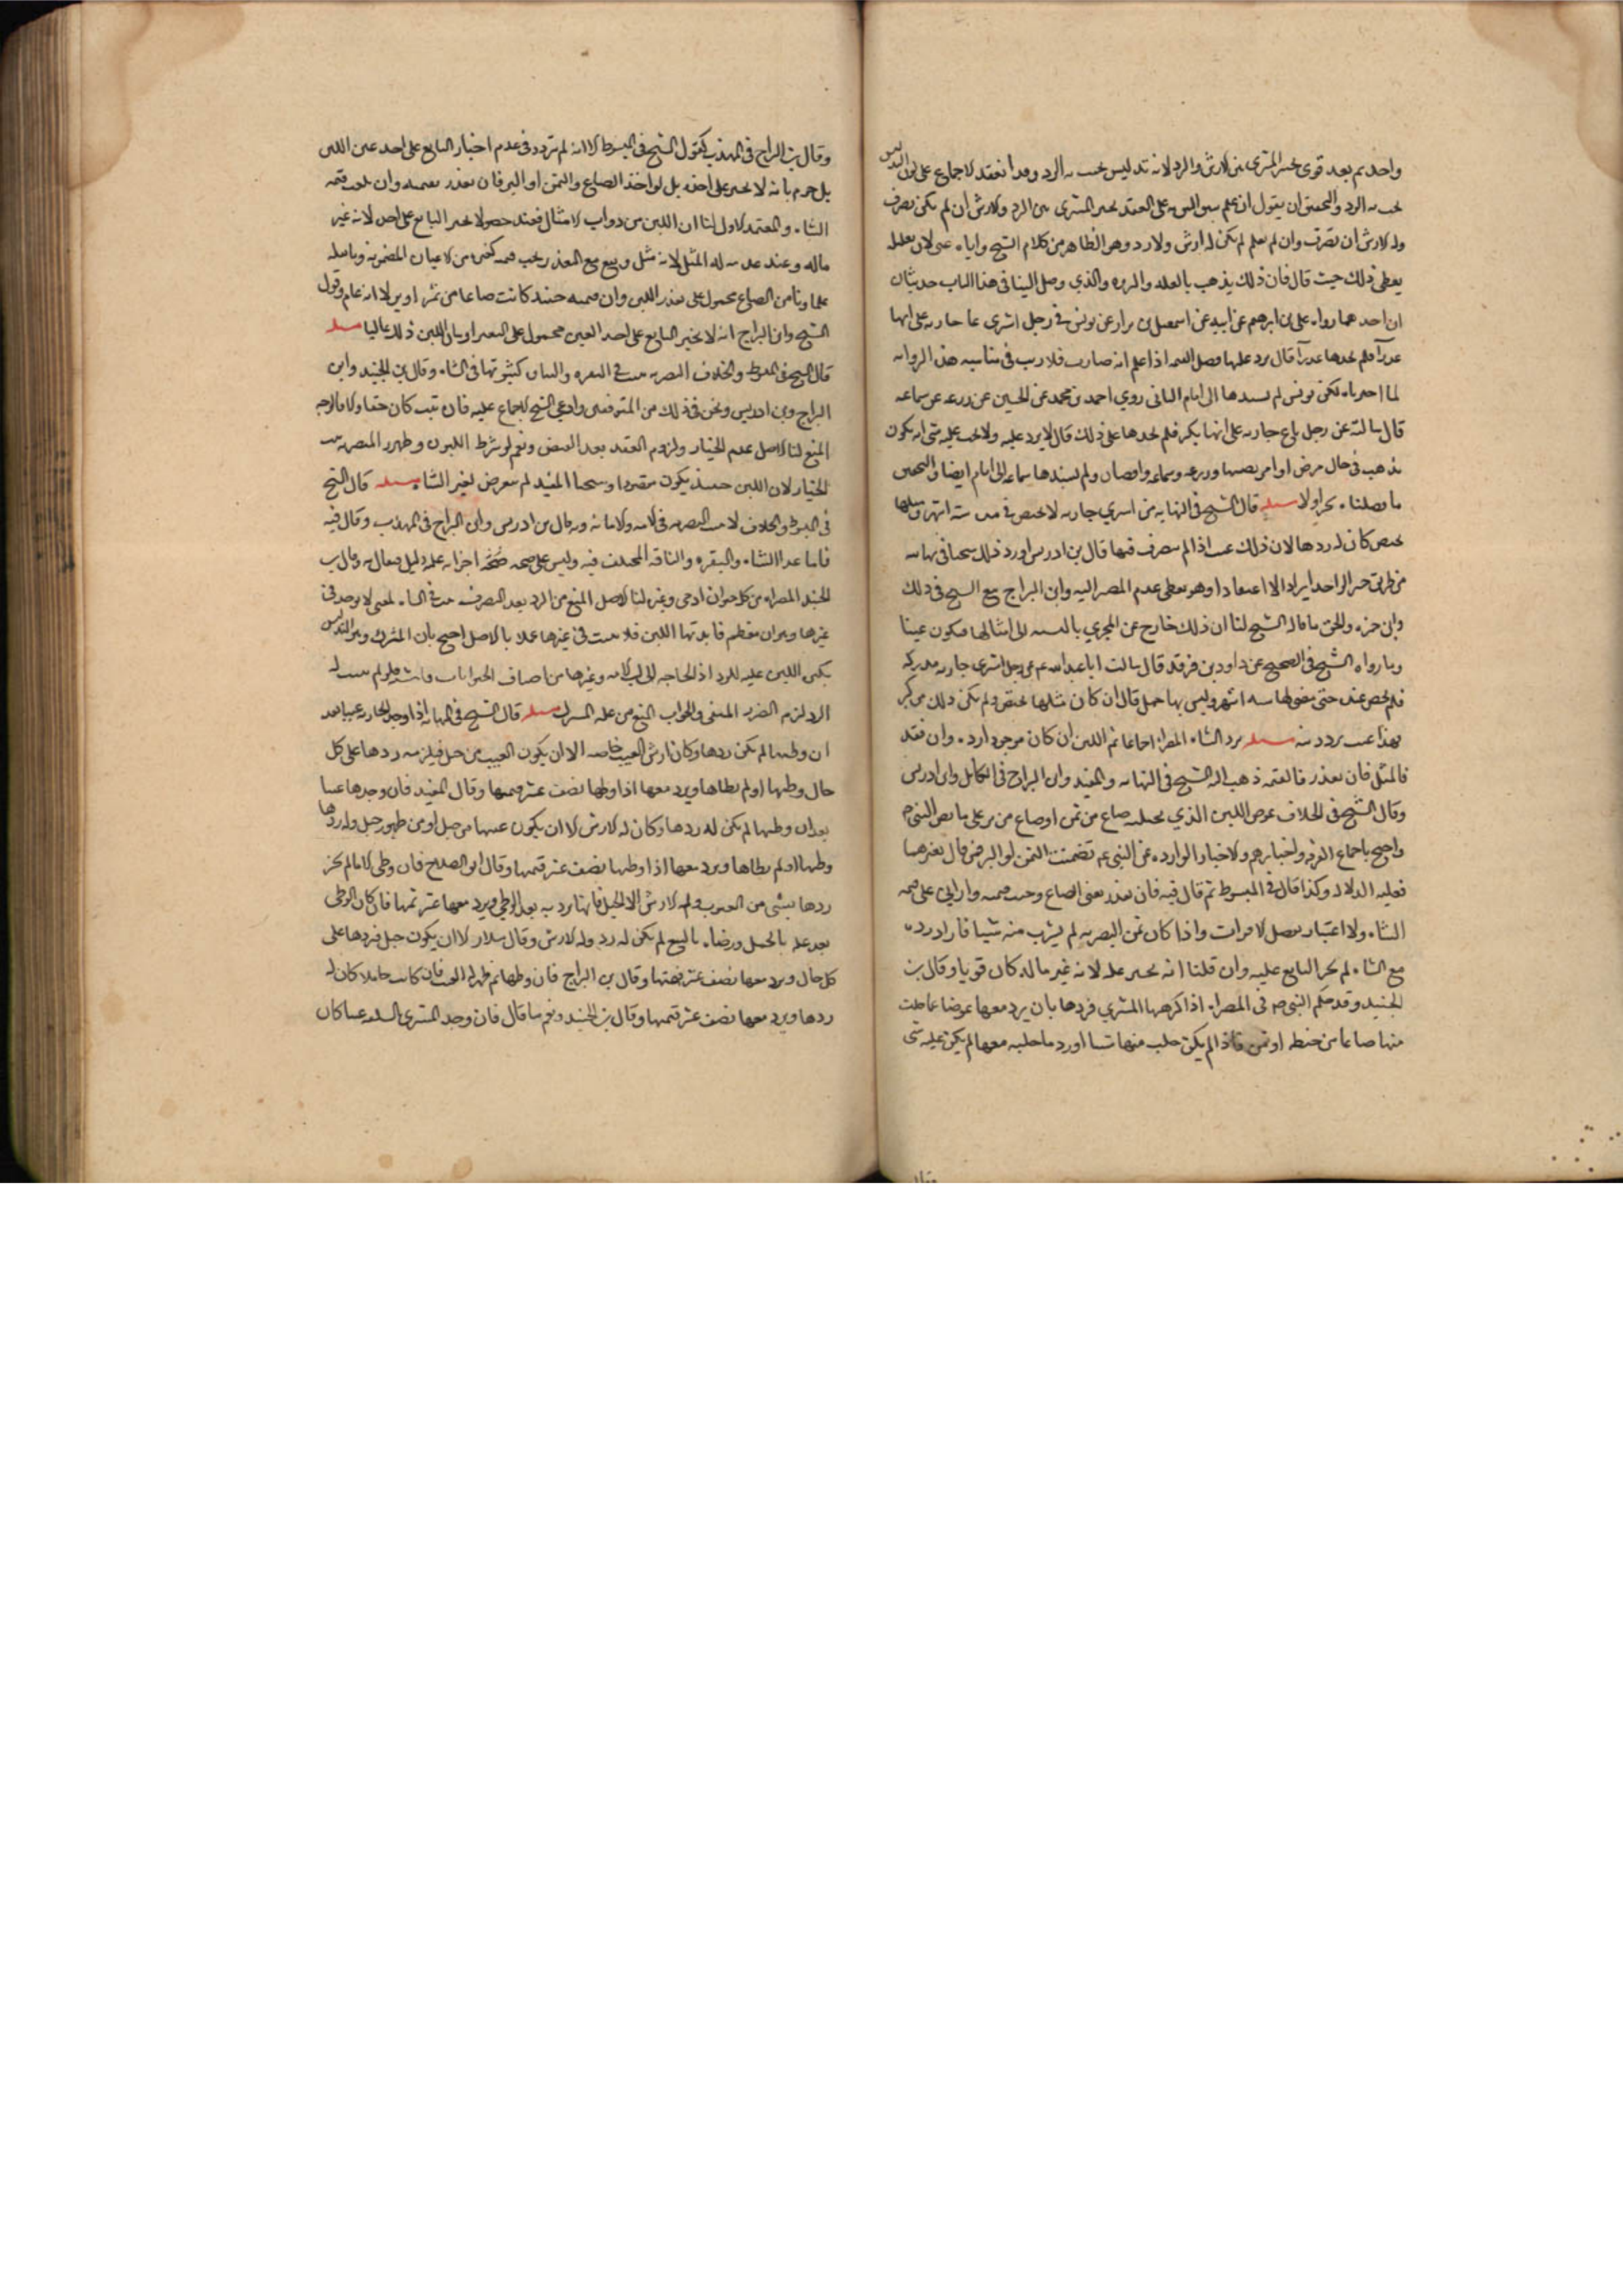 واحد ثم بعد قوى تخير المشترى بين الارش والرد لانه تدليس يجب به الرد وقد انعقد الاجماع على ان التدليس
يجب به الرد والتحقيق ان يقول ان علم سبق الثيوبه على العقد تخير المشترى بين الرد والارش ان لم يكن تصرف
وله الارش ان تصرف وان لم يعلم لم يكن له ارش ولا رد وهو الظاهر من كلام الشيخ واياه عنى لان تعليله
يعطى ذلك حيث قال فان ذلك يذهب بالعله والنزوه والذي وصل الينا فى هذا الباب حديثان
ان احدهما رواه على بن ابرهيم عن ابيه عن اسمعيل بن مرار عن يونس فى رجل اشترى جاريه على انها
عذرآ فلم يجدها عذرآ قال يرد عليها فضل القيمه اذا علم انه صادق فلا ريب فى مناسبه هذه الروايه
لما اخترناه لكن يونس لم يسندها الى امام الثانى روي احمد بن محمد عن الحسين عن زرعه عن سماعه
قال سالته عن رجل باع جاريه على انها بكر فلم يجدها على ذلك قال لا يرد عليه ولا يجب عليه شى انه يكون
يذهب فى حال مرض او امر يصيبها وزرعه وسماعه واقفيان ولم يسندها سماعه الى امام ايضا والتحقيق
ما وصلناه نحن اولا مسئله قال الشيخ فى النهايه من اشتري جاريه لا تحيض فى مده سته اشهر ومثلها
تحيض كان له ردها لان ذلك عيب اذا لم يتصرف فيها قال بن ادريس اورد ذلك شيخنا فى نهايته
من طريق خبر الواحد ايرادا لا اعتقادا وهو يعطى عدم المصير اليه وابن البراج تبع الشيخ فى ذلك
وابن حمزه والحق ما قاله الشيخ لنا ان ذلك خارج عن المجري بالنسبه الى امثالها فيكون عيبا
وما رواه الشيخ فى الصحيح عن داود بن فرقد قال سالت ابا عبد الله عم عن رجل اشترى جاريه مدركه
فلم تحض عنده حتى مضى لها سته اشهر وليس بها حمل قال ان كان مثلها تحيض ولم يكن ذلك من كبر
فهذا عيب ترد منه مسئله ترد الشاه المصراه اجماعا ثم اللبن ان كان موجودا رده وان فقد
فالمثل فان تعذر فالقيمه ذهب اليه الشيخ فى النهايه والمفيد وابن البراج فى الكامل وابن ادريس
وقال الشيخ فى الخلاف عوض اللبن الذي يحلبه صاع من تمر او صاع من بر على ما نص النبى ص
واحتج باجماع الفرقه واخبارهم والاخبار الوارده عن النبى عم تضمنت التمر او البر فمن قال بغيرهما
فعليه الدلاله وكذا قال فى المبسوط ثم قال فيه فان تعذر يعنى الصاع وجب قيمته وان اتى على قيمه
الشاه ولا اعتبار بفضل الاقوات واذا كان لبن التصريه لم يشرب منه شيا فاراد رده
مع الشاه لم يجبر البايع عليه وان قلنا انه يجبر عليه لانه عين ماله كان قويا وقال بن
الجنيد وقد حكم النبى ص فى المصراه اذا كرهها المشتري فردها بان يرد معها عوضا عما حلب
منها صاعا من حنطه او تمر فاذا لم يكن حلب منها شيا او رد ما حلبه معها لم يكن عليه شى
وقال
وقال بن البراج فى المهذب كقول الشيخ فى المبسوط الا انه لم تردد فى عدم اجبار البايع على اخذ عين اللبن
بل جزم بانه لا يجبر على اخذه بل له اخذ الصاع والتمر او البر فان تعذر بقيمته وان بلغت قيمه
الشاه والمعتمد الاول لنا ان اللبن من ذوات الامثال فعند حصوله يجبر البايع على اخذه لانه عين
ماله وعند عدمه له المثل لانه مثلى ومع تعذر يجب قيمه كغيره من الاعيان المضمونه وما نقله
علماونا من الصاع محمول على تعذر اللبن وان قيمته حينئذ كانت صاعا من تمر او بر لا انه عام وقول
الشيخ وابن البراج انه لا يجبر البايع على اخذ العين محمول على التغير اذ بان اللبن ذلك غالبا مسئله
قال الشيخ فى المبسوط والخلاف التصريه تثبت فى البقره والناقه كثبوتها فى الشاه وقال بن الجنيد وابن
البراج وبن ادريس ونحن فى ذلك من المتوقفين وادعى الشيخ الاجماع عليه فان ثبت كان حقا والا فالوجه
المنع لنا الاصل عدم الخيار ولزوم العقد بعد القبض ونعم لو شرط اللبون وظهرت التصريه ثبت
الخيار لان اللبن حينئذ يكون مقصودا وشيخنا المفيد لم يتعرض لغير الشاه مسئله قال الشيخ
فى المبسوط والخلاف لا تثبت التصريه فى الامه والاتانه وبه قال بن ادريس وابن البراج فى المهذب وقال فيه
فاما ما عدا الشاه والبقره والناقه المختلف فيه وليس على صحه اجرايه عليه دليل فيقال به وقال بن
الجنيد المصراه من كل حيوان ادمى وغيره لنا الاصل المنع من الرد بعد التصرف ثبت فى الشاه لمعنى لا يوجد فى
غيرها وهو ان معظم فايدتها اللبن فلا يثبت فى غيرها عملا بالاصل احتج بان المشترك وهو التدليس
بكثره اللبن عليه للرد اذ الحاجه الى لبن الامه وغيرها من اصناف الحيوانات ثابته فلو لم يثبت له
الرد لزم الضرر المنفى والجواب المنع من عليه المشترك مسئله قال الشيخ فى النهايه اذا وجد بالجاريه عيبا بعد
ان وطيها لم يكن ردها وكان له ارش العيب خاصه الا ان يكون العيب من حبل فيلزمه ردها على كل
حال وطيها او لم يطاها ويرد معها اذا وطيها نصف عشر قيمتها وقال المفيد فان وجد بها عيبا
بعد ان وطيها لم يكن له ردها وكان له الارش الا ان يكون عيبها من حبل او من ظهور حبل وله ردها
وطيها او لم يطاها ويرد معها اذا وطيها نصف عشر قيمتها وقال ابو الصلاح فان وطى الامه لم يجز
ردها بشى من العيوب وله الارش الا الحبل فانها ترد به بعد الوطى ويرد معها عشر ثمنها فان كان الوطى
بعد علمه بالحبل ورضاه بالبيع لم يكن له رد وله الارش وقال سلار الا ان يكون حبل فردها على
كل حال ويرد معها نصف عشر قيمتها وقال بن البراج فان وطيها ثم ظهر له العيب فان كانت حاملا كان له
ردها ويرد معها نصف عشر قيمتها وقال بن الجنيد ونعم ما قال فان وجد المشترى بالسلعه عيبا كان